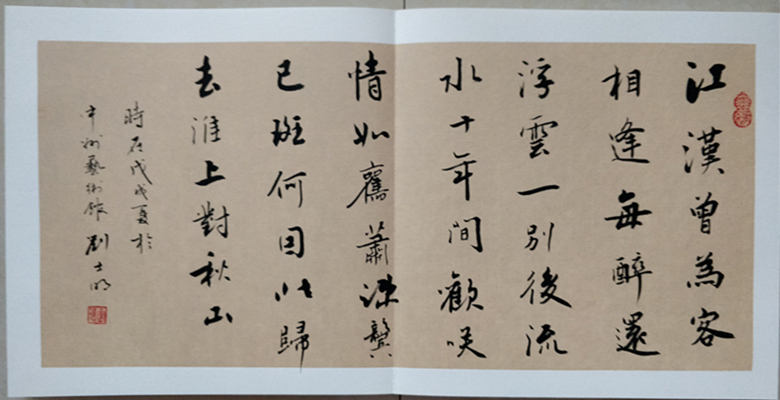 江漢曾為客
相逢每醉還
浮雲一别後流
水十年間歡咲
情如舊蕭疎鬢
已斑何因北歸
去淮上對秋山
時在戊戌夏於
中州藝術館劉士明